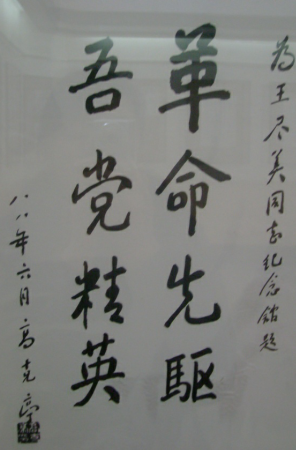 为王尽美同志纪念馆题
革命先驱
吾党精英
八八年六月高克亭